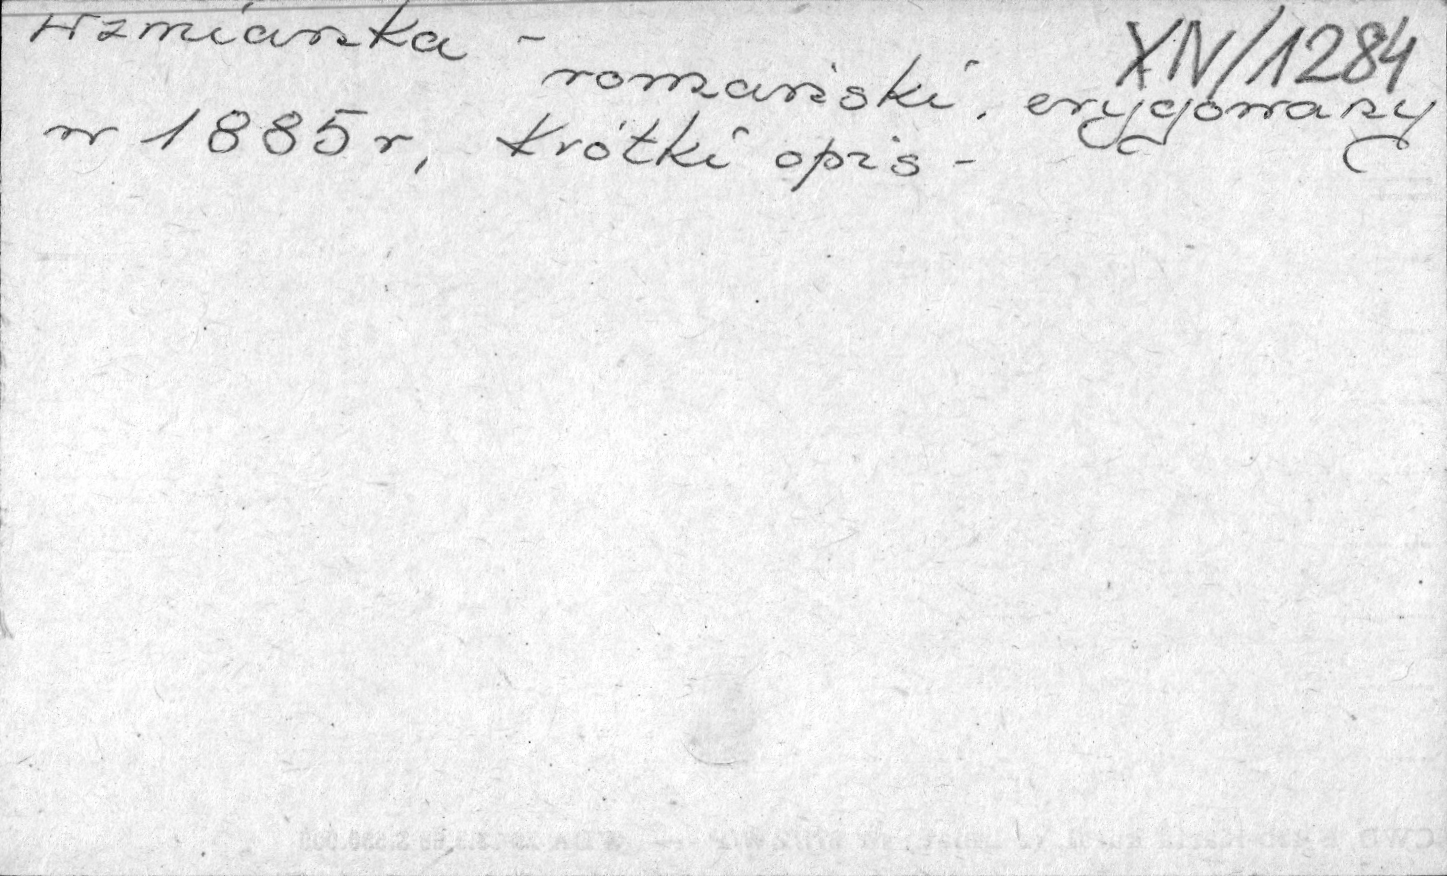 Wzmianka -
XIV/1284
romański, erygowany
w 1885 r, krótki opis -